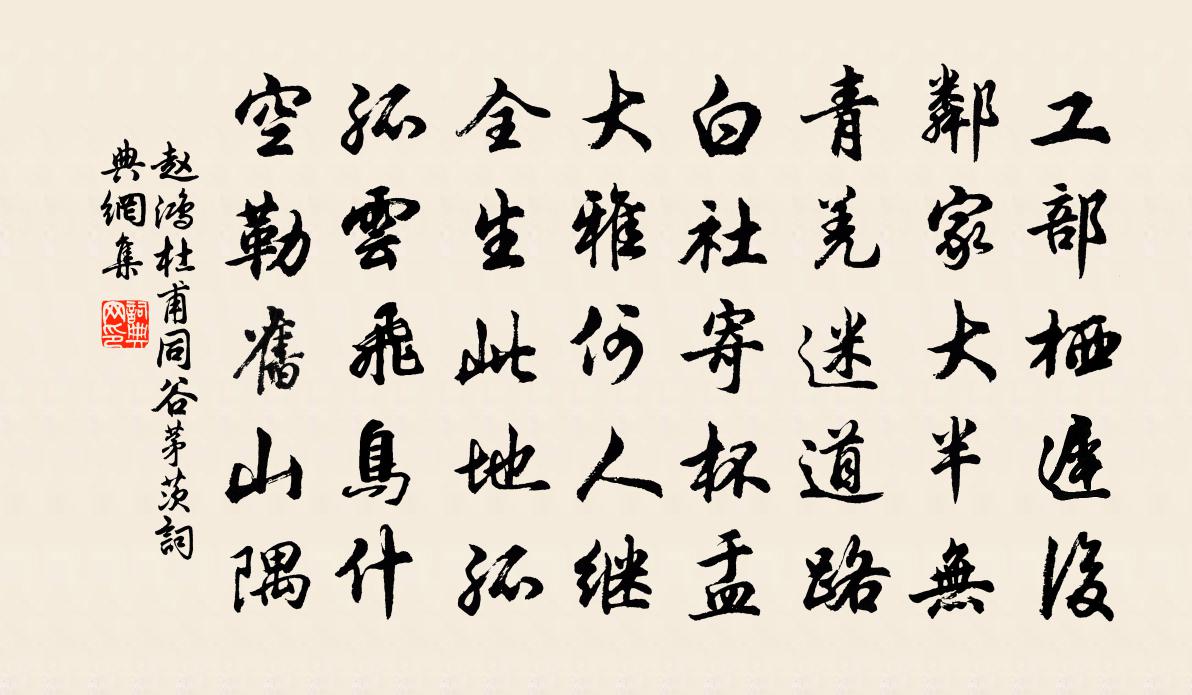 工部栖遲後
鄰家大半無
青羌迷道路
白社寄杯盂
大雅何人继
全生此地孤
孤雲飛鳥什
空勒舊山隅
赵鴻杜甫同谷茅茨詞
典網集
詞典網印